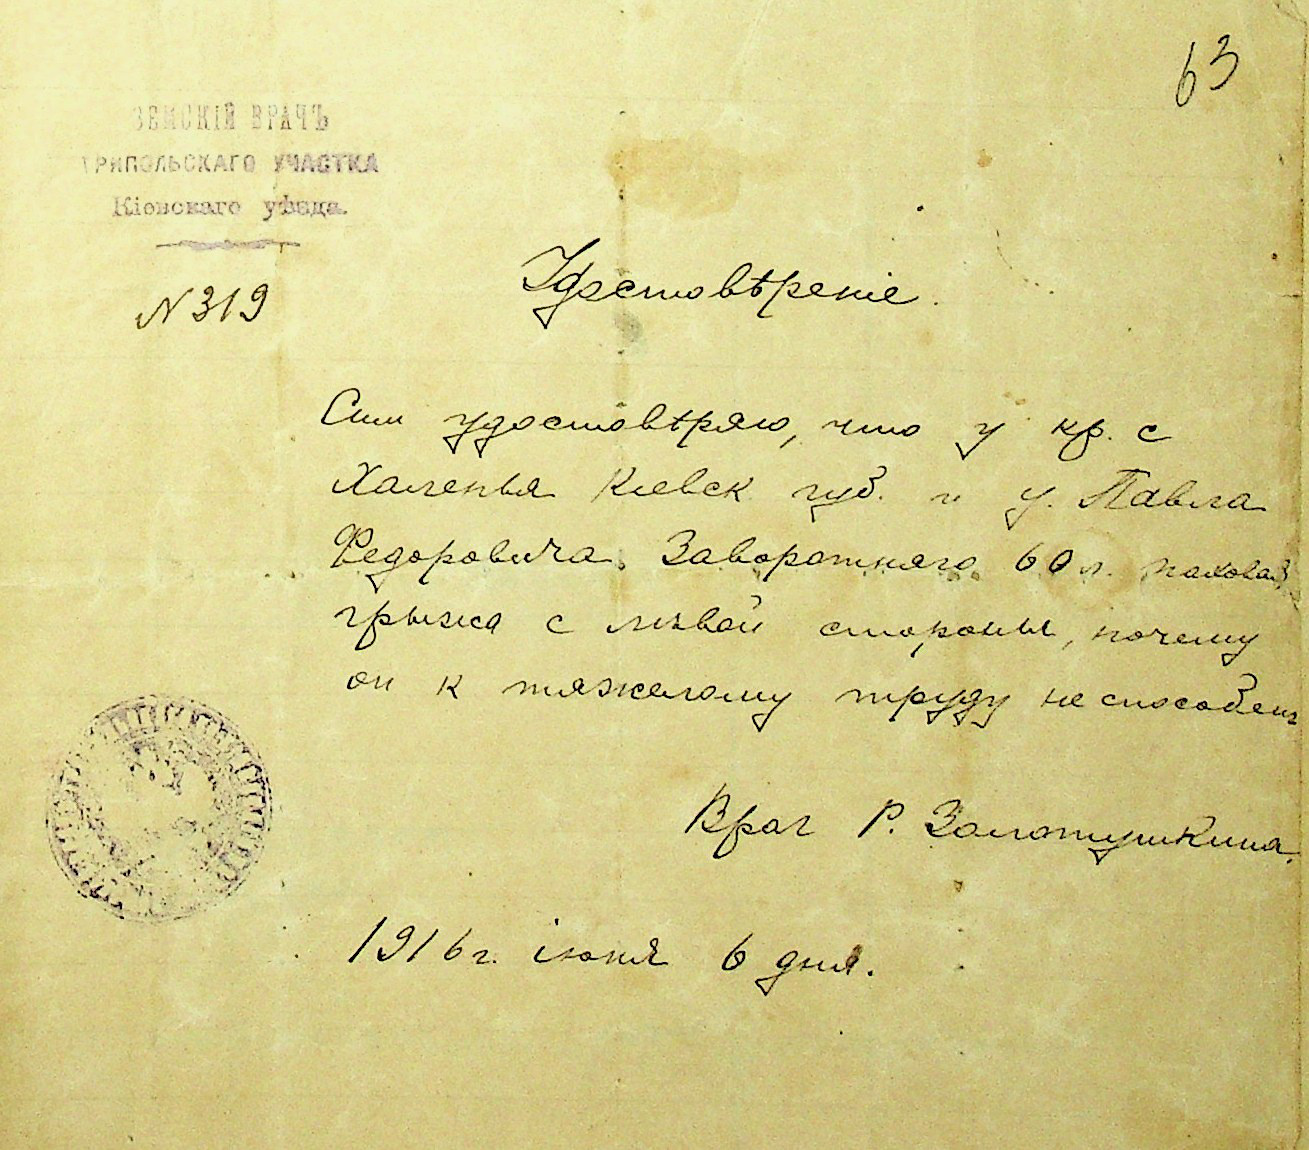 63
ЗЕМСКІЙ ВРАЧЪ
ТРИПОЛЬСКАГО УЧАСТКА
Кіевскаго уѣзда.
N 319
Удостовѣреніе
Сим удостовѣряю, что у кр. с
Халепья Киевск губ. и у. Павла
Федоровича Заворотняго 60 л. паховая
грыжа с лѣвой стороны, почему
он к тяжелому труду не способен
Врач Р. Золотушкина.
1916 г. іюня 6 дня.